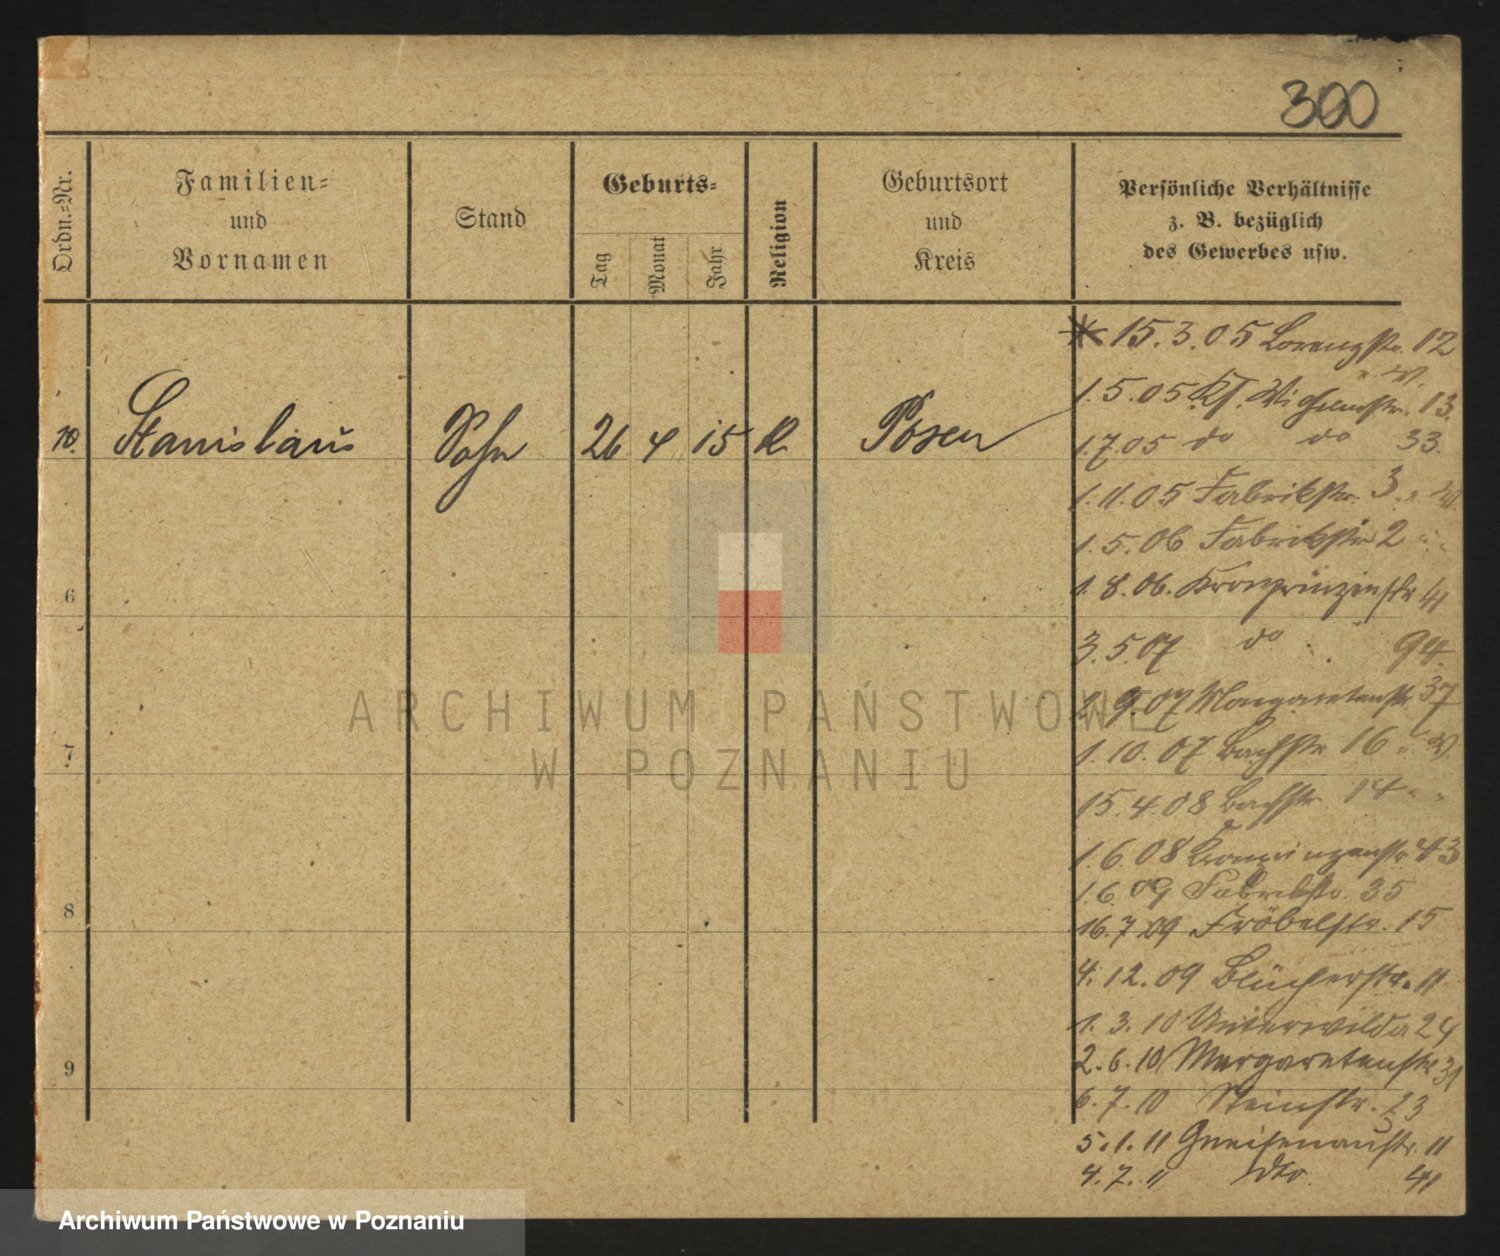 300
Ordn.-Nr.
Familien-
und
Vornamen
Stand
Geburts-
Tag
Monat
Jahr
Religion
Geburtsort
und
Kreis
Persönliche Verhältnisse
z. B. bezüglich
des Gewerbes usw.
10. Stanislaus Sohn 26 4 15 K. Posen
6
7
8
9
* 15.3.05 Lorenzstr. 12
1.5.05 13.
1.7.05 do do 33.
1.11.05 Fabrikstr. 3
1.5.06 Fabrikstr 2
1.8.06. Kronprinzenstr 41
3.5.07 do 94.
1.9.07 Margaretenstr 37
1.10.07 Bachstr 16
15.4.08 Bachstr. 14
1.6.08 Kronprinzenstr 43
1.6.09 Fabrikstr. 35
16.7.09 Fröbelstr. 15
4.12.09 Blücherstr. 11
1.3.10 Unterwilda 24
2.6.10 Margaretenstr 31
6.7.10 Steinstr. 13
5.1.11 Gneisenaustr. 11
4.7.11 dto. 41
ARCHIWUM PAŃSTWOWE
W POZNANIU
Archiwum Państwowe w Poznaniu